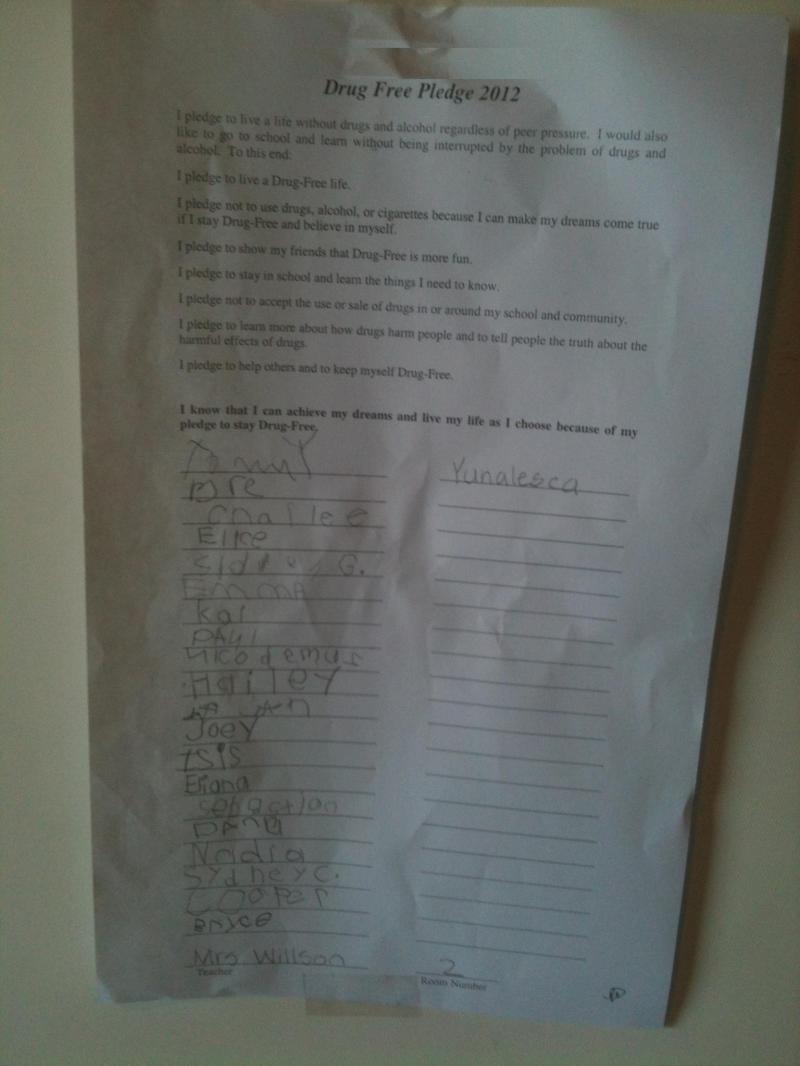 Drug Free Pledge 2012
I pledge to live a life without drugs and alcohol regardless of peer pressure. I would also
like to go to school and learn without being interrupted by the problem of drugs and
alcohol. To this end:
I pledge to live a Drug-Free life.
I pledge not to use drugs, alcohol, or cigarettes because I can make my dreams come true
if I stay Drug-Free and believe in myself.
I pledge to show my friends that Drug-Free is more fun.
I pledge to stay in school and learn the things I need to know.
I pledge not to accept the use or sale of drugs in or around my school and community.
I pledge to learn more about how drugs harm people and to tell people the truth about the
harmful effects of drugs.
I pledge to help others and to keep myself Drug-Free.
I know that I can achieve my dreams and live my life as I choose because of my
pledge to stay Drug-Free.
Dre
Chailee
G.
Emma
Kai
PAUl
Nicodemus
Hailey
Joey
ISIS
Eliana
Sebastian
Nadia
Sydney C.
Cooper
Bryce
Yunalesca
Mrs Willson
Teacher
2
Room Number